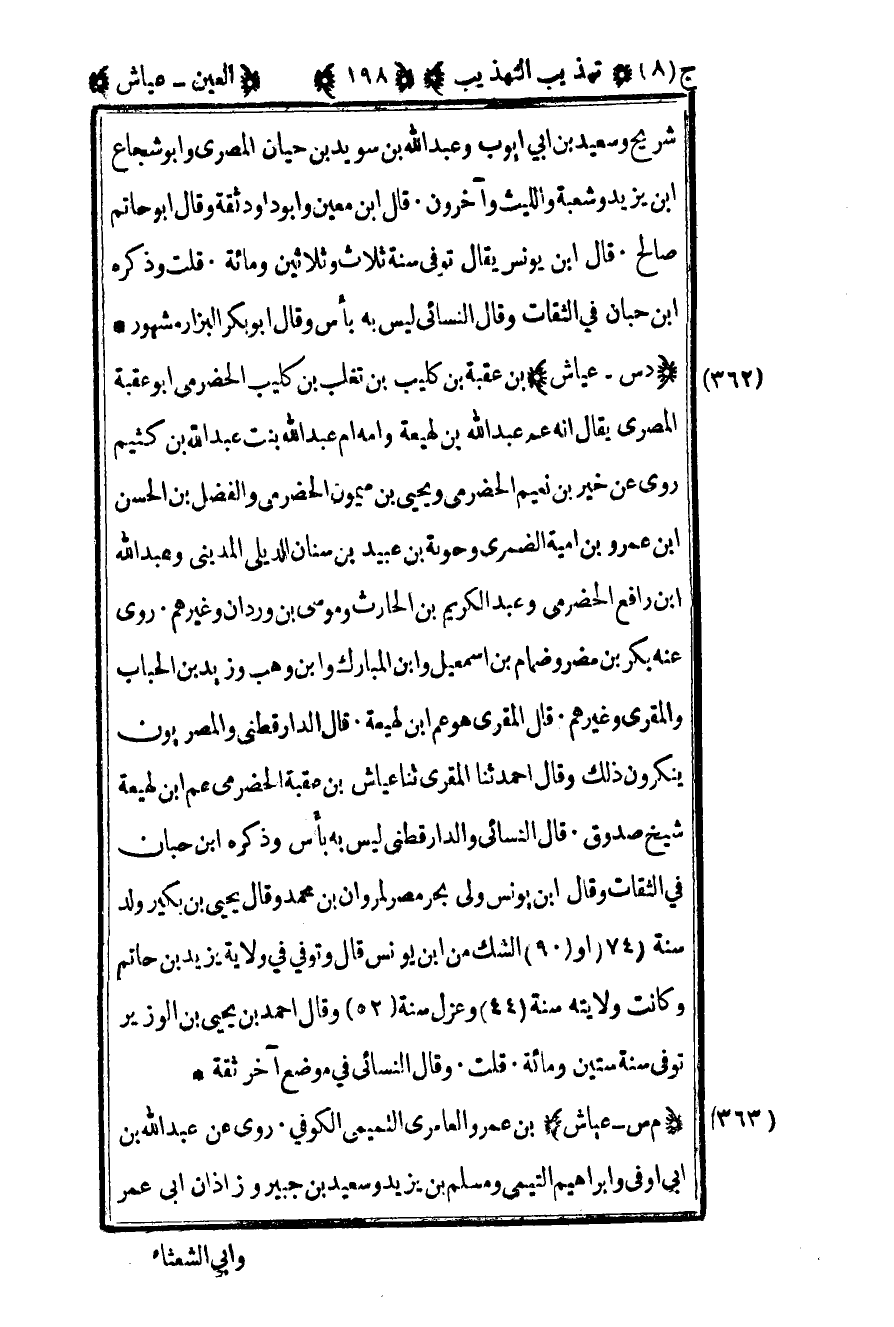 ج (٨) تهذيب التهذيب ١٩٨ العين - عياش
شريح وسعيد بن ابي ايوب وعبدالله بن سويد بن حيان المصرى وابو شجاع
ابن يزيد وشعبة والليث وآخرون ٠ قال ابن معين وابو داود ثقة وقال ابو حاتم
صالح ٠ قال ابن يونس يقال توفى سنة ثلاث وثلاثين ومائة ٠ قلت وذكره
ابن حبان في الثقات وقال النسائى ليس به بأس وقال ابو بكر البزار مشهور *
(٣٦٢) ﴿ دس - عياش ﴾ بن عقبة بن كليب بن تغلب بن كليب الحضرمى ابو عقبة
المصرى يقال انه عم عبدالله بن لهيعة وامه ام عبدالله بنت عبدالله بن كثيم
روى عن خير بن نعيم الحضرمى ويحيى بن ميمون الحضرمى والفضل بن الحسن
ابن عمرو بن امية الضمرى وحوية بن عبيد بن سنان الديلى المدينى وعبدالله
ابن رافع الحضرمى وعبد الكريم بن الحارث وموسى بن وردان وغيرهم ٠ روى
عنه بكر بن مضر وضمام بن اسمعيل وابن المبارك وابن وهب وزيد بن الحباب
والمقرى وغيرهم ٠ قال المقرى هو عم ابن لهيعة ٠ قال الدارقطنى والمصريون
ينكرون ذلك وقال احمد ثنا المقرى ثنا عياش بن عقبة الحضرمى عم ابن لهيعة
شيخ صدوق ٠ قال النسائى والدارقطنى ليس به بأس وذكره ابن حبان
في الثقات وقال ابن يونس ولى بحر مصر لمروان بن محمد وقال يحيى بن بكير ولد
سنة (٧٤) او (٩٠) الشك من ابن يونس قال وتوفي في ولاية يزيد بن حاتم
وكانت ولايته سنة (٤٤) وعزل سنة (٥٢) وقال احمد بن يحيى بن الوزير
توفى سنة ستين ومائة ٠ قلت ٠ وقال النسائى في موضع آخر ثقة *
(٣٦٣) ﴿ م س - عياش ﴾ بن عمرو العامرى التميمى الكوفي ٠ روى عن عبدالله بن
ابي اوفى وابراهيم التيمى ومسلم بن يزيد وسعيد بن جبير وزاذان ابى عمر
وابي الشعثاء